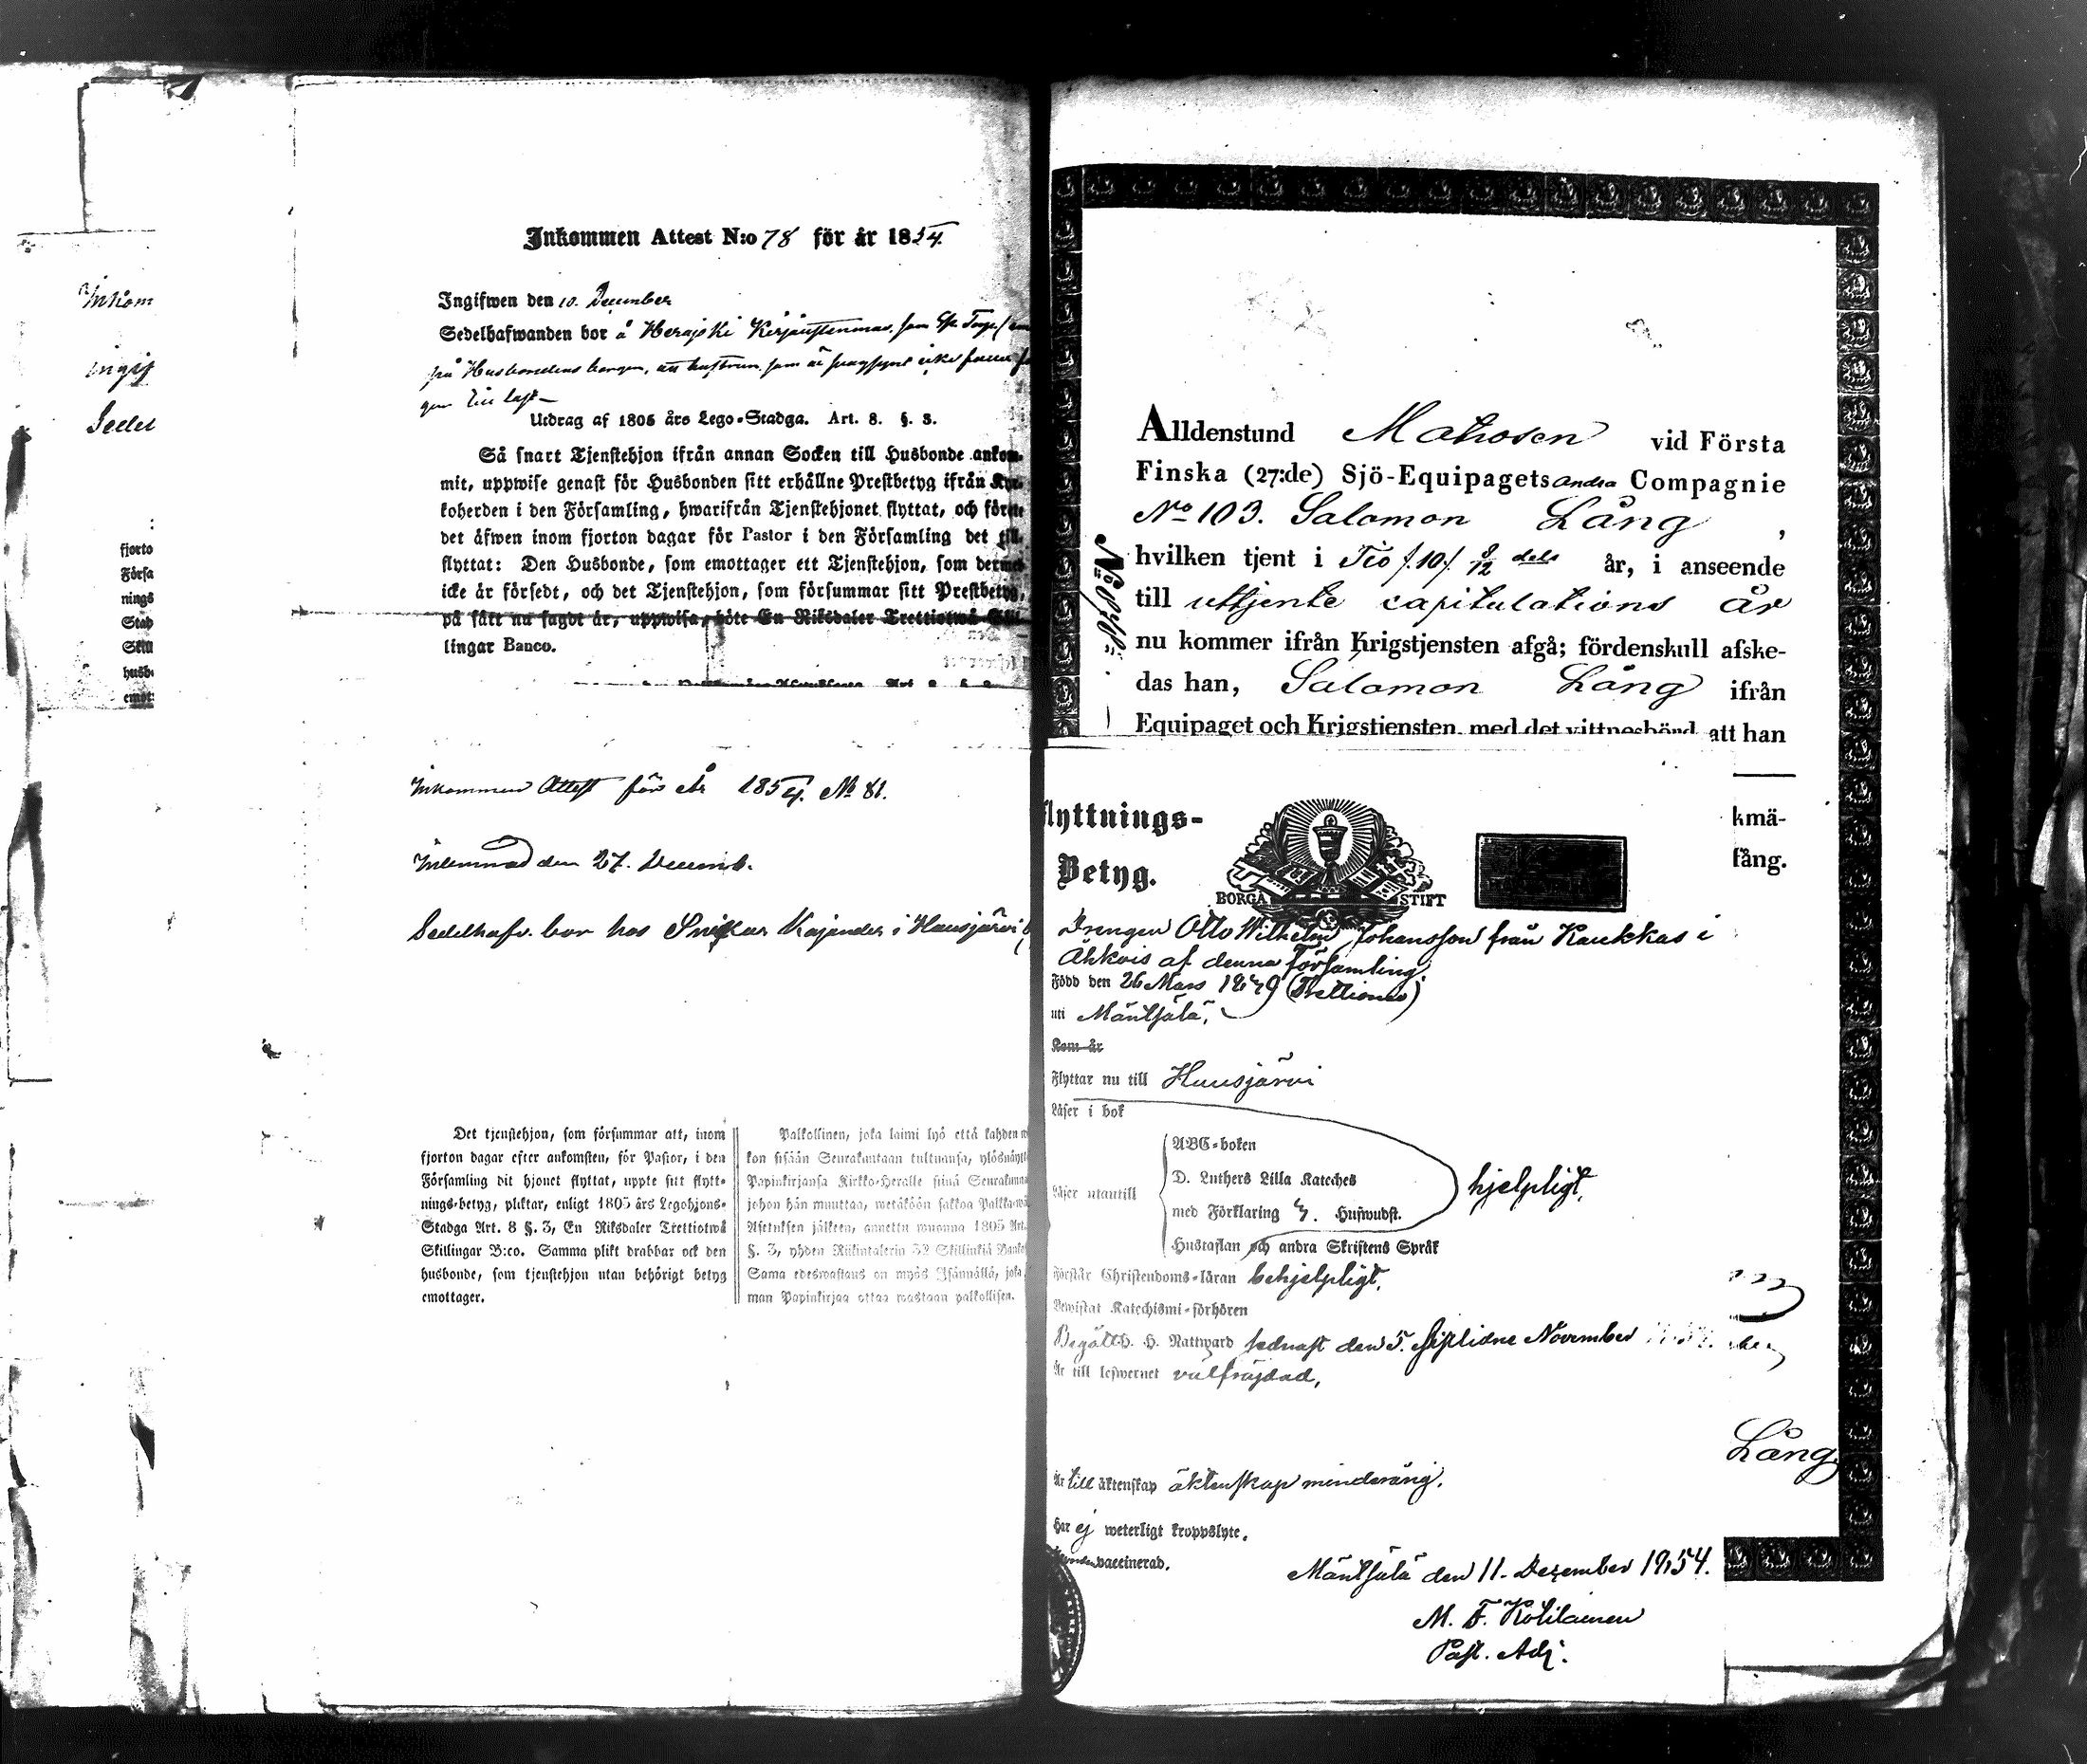 Inkom
ingif
Sedel
fjorto
Försa
nings
Stad
Skill
husb
emot
Inkommen Attest N:o 78 för år 1854.
Ingifwen den 10. December
Sedelhafwanden bor å Herajoki
på Husbondens
Utdrag af 1805 års Lego-Stadga. Art. 8. §. 3.
Så snart Tjenstehjon ifrån annan Socken till Husbonde ankom-
mit, uppwise genast för Husbonden sitt erhållne Prestbetyg ifrån Kyr-
koherden i den Församling, hwarifrån Tjenstehjonet flyttat, och förete
det äfwen inom fjorton dagar för Pastor i den Församling det till-
flyttat: Den Husbonde, som emottager ett Tjenstehjon, som dermed
icke är försedt, och det Tjenstehjon, som försummar sitt Prestbetyg,
på sätt nu sagdt är, uppwisa, böte En Riksdaler Trettiotwå Skil-
lingar Banco.
Inkommen Attest för år 1854. No 81.
Inlemnad den 27. Decemb.
Sedelhafv. bor hos Snikar Kajander i Hausjärvi
Det tjenstehjon, som försummar att, inom
fjorton dagar efter ankomsten, för Pastor, i den
Församling dit hjonet flyttat, uppte sitt flytt-
nings-betyg, pliktar, enligt 1805 års Legohjons-
Stadga Art. 8 §. 3, En Riksdaler Trettiotwå
Skillingar B:co. Samma plikt drabbar ock den
husbonde, som tjenstehjon utan behörigt betyg
emottager.
Palkollinen, joka laimi lyö että kahden
kon sisään Seurakuntaan tultuansa, ylösnäytt
Papinkirjansa Kirkko-Heralle siinä Seurakunna
johon hän muuttaa, wetäköön sakkoa Palkka-wä
Asetuksen jälkeen, annettu wuonna 1805 Art.
§. 3, yhden Riikintalerin 32 Skillinkiä Banko
Sama edeswastaus on myös Isännällä, joka
man Papinkirjaa ottaa wastaan palkollisen.
Alldenstund Matrosen vid Första
Finska (27:de) Sjö-Equipagets andra Compagnie
No 103. Salomon Lång,
hvilken tjent i Tio /10/ 8/12 dels år, i anseende
till uttjente capitulations år
nu kommer ifrån Krigstjensten afgå; fördenskull afske-
das han, Salomon Lång ifrån
Equipaget och Krigstjensten, med det vittnesbörd, att han
kmä-
fång.
Lång
flyttnings-
Betyg.
BORGÅ STIFT
Drengen Otto Wilhelm Johansson från Kaukkas i
Ähkois af denna Församling.
Född den 26 Mars 1839 (Trettionio)
uti Mäntsälä,
Kom år
Flyttar nu till Hausjärvi
Läser i bok
Läser utantill
ABC-boken
D. Luthers Lilla Kateches
med Förklaring Huswudst.
Hustaflan och andra Skriftens Språk
hjelpligt.
Förstår Christendoms-läran behjelpligt.
Bewistat Katechismi-förhören
Begått H. H. Nattward sednast den 5. sistlidne November
Är till lefwernet välfräjdad,
Är till äktenskap äktenskap minderårig.
Har ej weterligt kroppslyte.
vaccinerad.
Mäntsälä den 11. December 1854.
M. F. Kotilainen
Past. Adj.